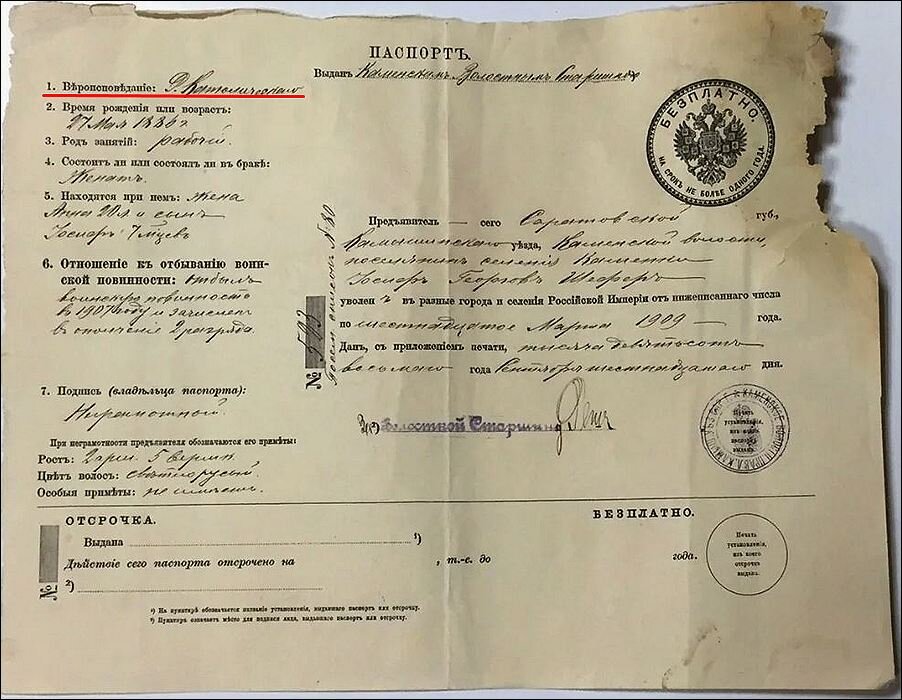 ПАСПОРТЪ.
Выданъ Каменскимъ Волостнымъ Старшиною
1. Вѣроисповѣданіе: Р. Католическаго
2. Время рожденія или возрастъ:
27 Мая 1886 г
3. Родъ занятій: рабочій.
4. Состоитъ ли или состоялъ ли въ бракѣ:
Женатъ.
5. Находятся при немъ: жена
Анна 20 л и сынъ
Іосифъ 7 м-цевъ
6. Отношеніе къ отбыванію воин-
ской повинности: отбылъ
воинскую повинность
въ 1907 году и зачисленъ
въ ополченіе 2 разряда.
7. Подпись (владѣльца паспорта):
Неграмотный.
При неграмотности предъявителя обозначаются его примѣты:
Ростъ: 2 арш. 5 верш.
Цвѣтъ волосъ: свѣтлорусый
Особыя примѣты: не имѣетъ.
БЕЗПЛАТНО.
НА СРОКЪ НЕ БОЛѢЕ ОДНОГО ГОДА.
№ 503
№ 80
Предъявитель — сего Саратовской губ.,
Камышинскаго уѣзда, Каменской волости
поселянинъ селенія Каменки
Іосифъ Георговъ Шеферъ
уволенъ въ разные города и селенія Россійской Имперіи отъ нижеписаннаго числа
по шестнадцатое Марта 1909 — года.
Данъ, съ приложеніемъ печати, тысяча девятьсотъ
восьмаго года Сентября шестнадцатаго дня.
Волостной Старшина
Печать
установленія,
изъ коего
паспортъ
выданъ.
ОТСРОЧКА.
БЕЗПЛАТНО.
Выдана ¹)
Дѣйствіе сего паспорта отсрочено на , т.-е. до года.
№
²)
Печать
установленія,
изъ коего
отсрочка
выдана.
¹) На пунктирѣ обозначается названіе установленія, выдавшаго паспортъ или отсрочку.
²) Пунктиръ означаетъ мѣсто для подписи лица, выдавшаго паспортъ или отсрочку.